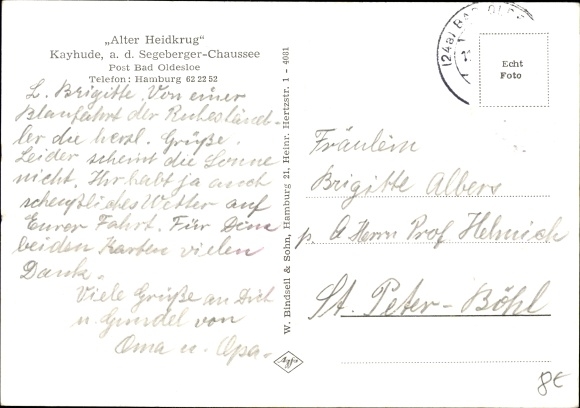 „Alter Heidkrug"
Kayhude, a. d. Segeberger-Chaussee
Post Bad Oldesloe
Telefon: Hamburg 62 22 52
L. Brigitte. Von einer
Blaufahrt der Ruhesländ-
ler die herzl. Grüße.
Leider scheint die Sonne
nicht. Ihr habt ja auch
scheußliches Wetter auf
Eurer Fahrt. Für Deine
beiden Karten vielen
Dank.
Viele Grüße an Dich
u. Gundel von
Oma u. Opa.
W. Bindseil & Sohn, Hamburg 21, Heinr. Hertzstr. 1 - 4081
Agfa
(24a) BAD OLDES
Echt
Foto
Fräulein
Brigitte Albers
p. A Herrn Prof Helmich
St. Peter-Böhl
8€